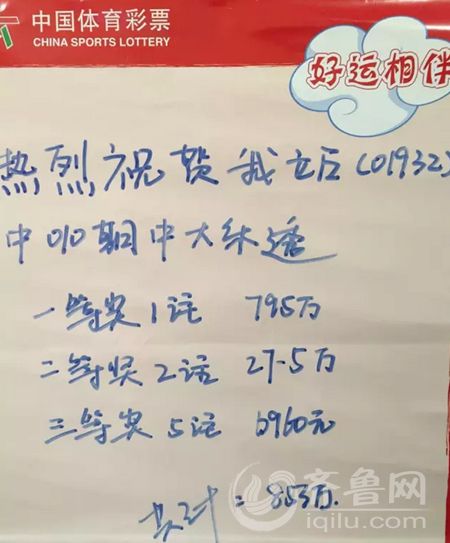 中国体育彩票
CHINA SPORTS LOTTERY
好运相伴
热烈祝贺我立后(01932)
中010期中大乐透
一等奖1注 795万
二等奖2注 27.5万
三等奖5注 6960元
共计=853万.
齐鲁网
iqilu.com